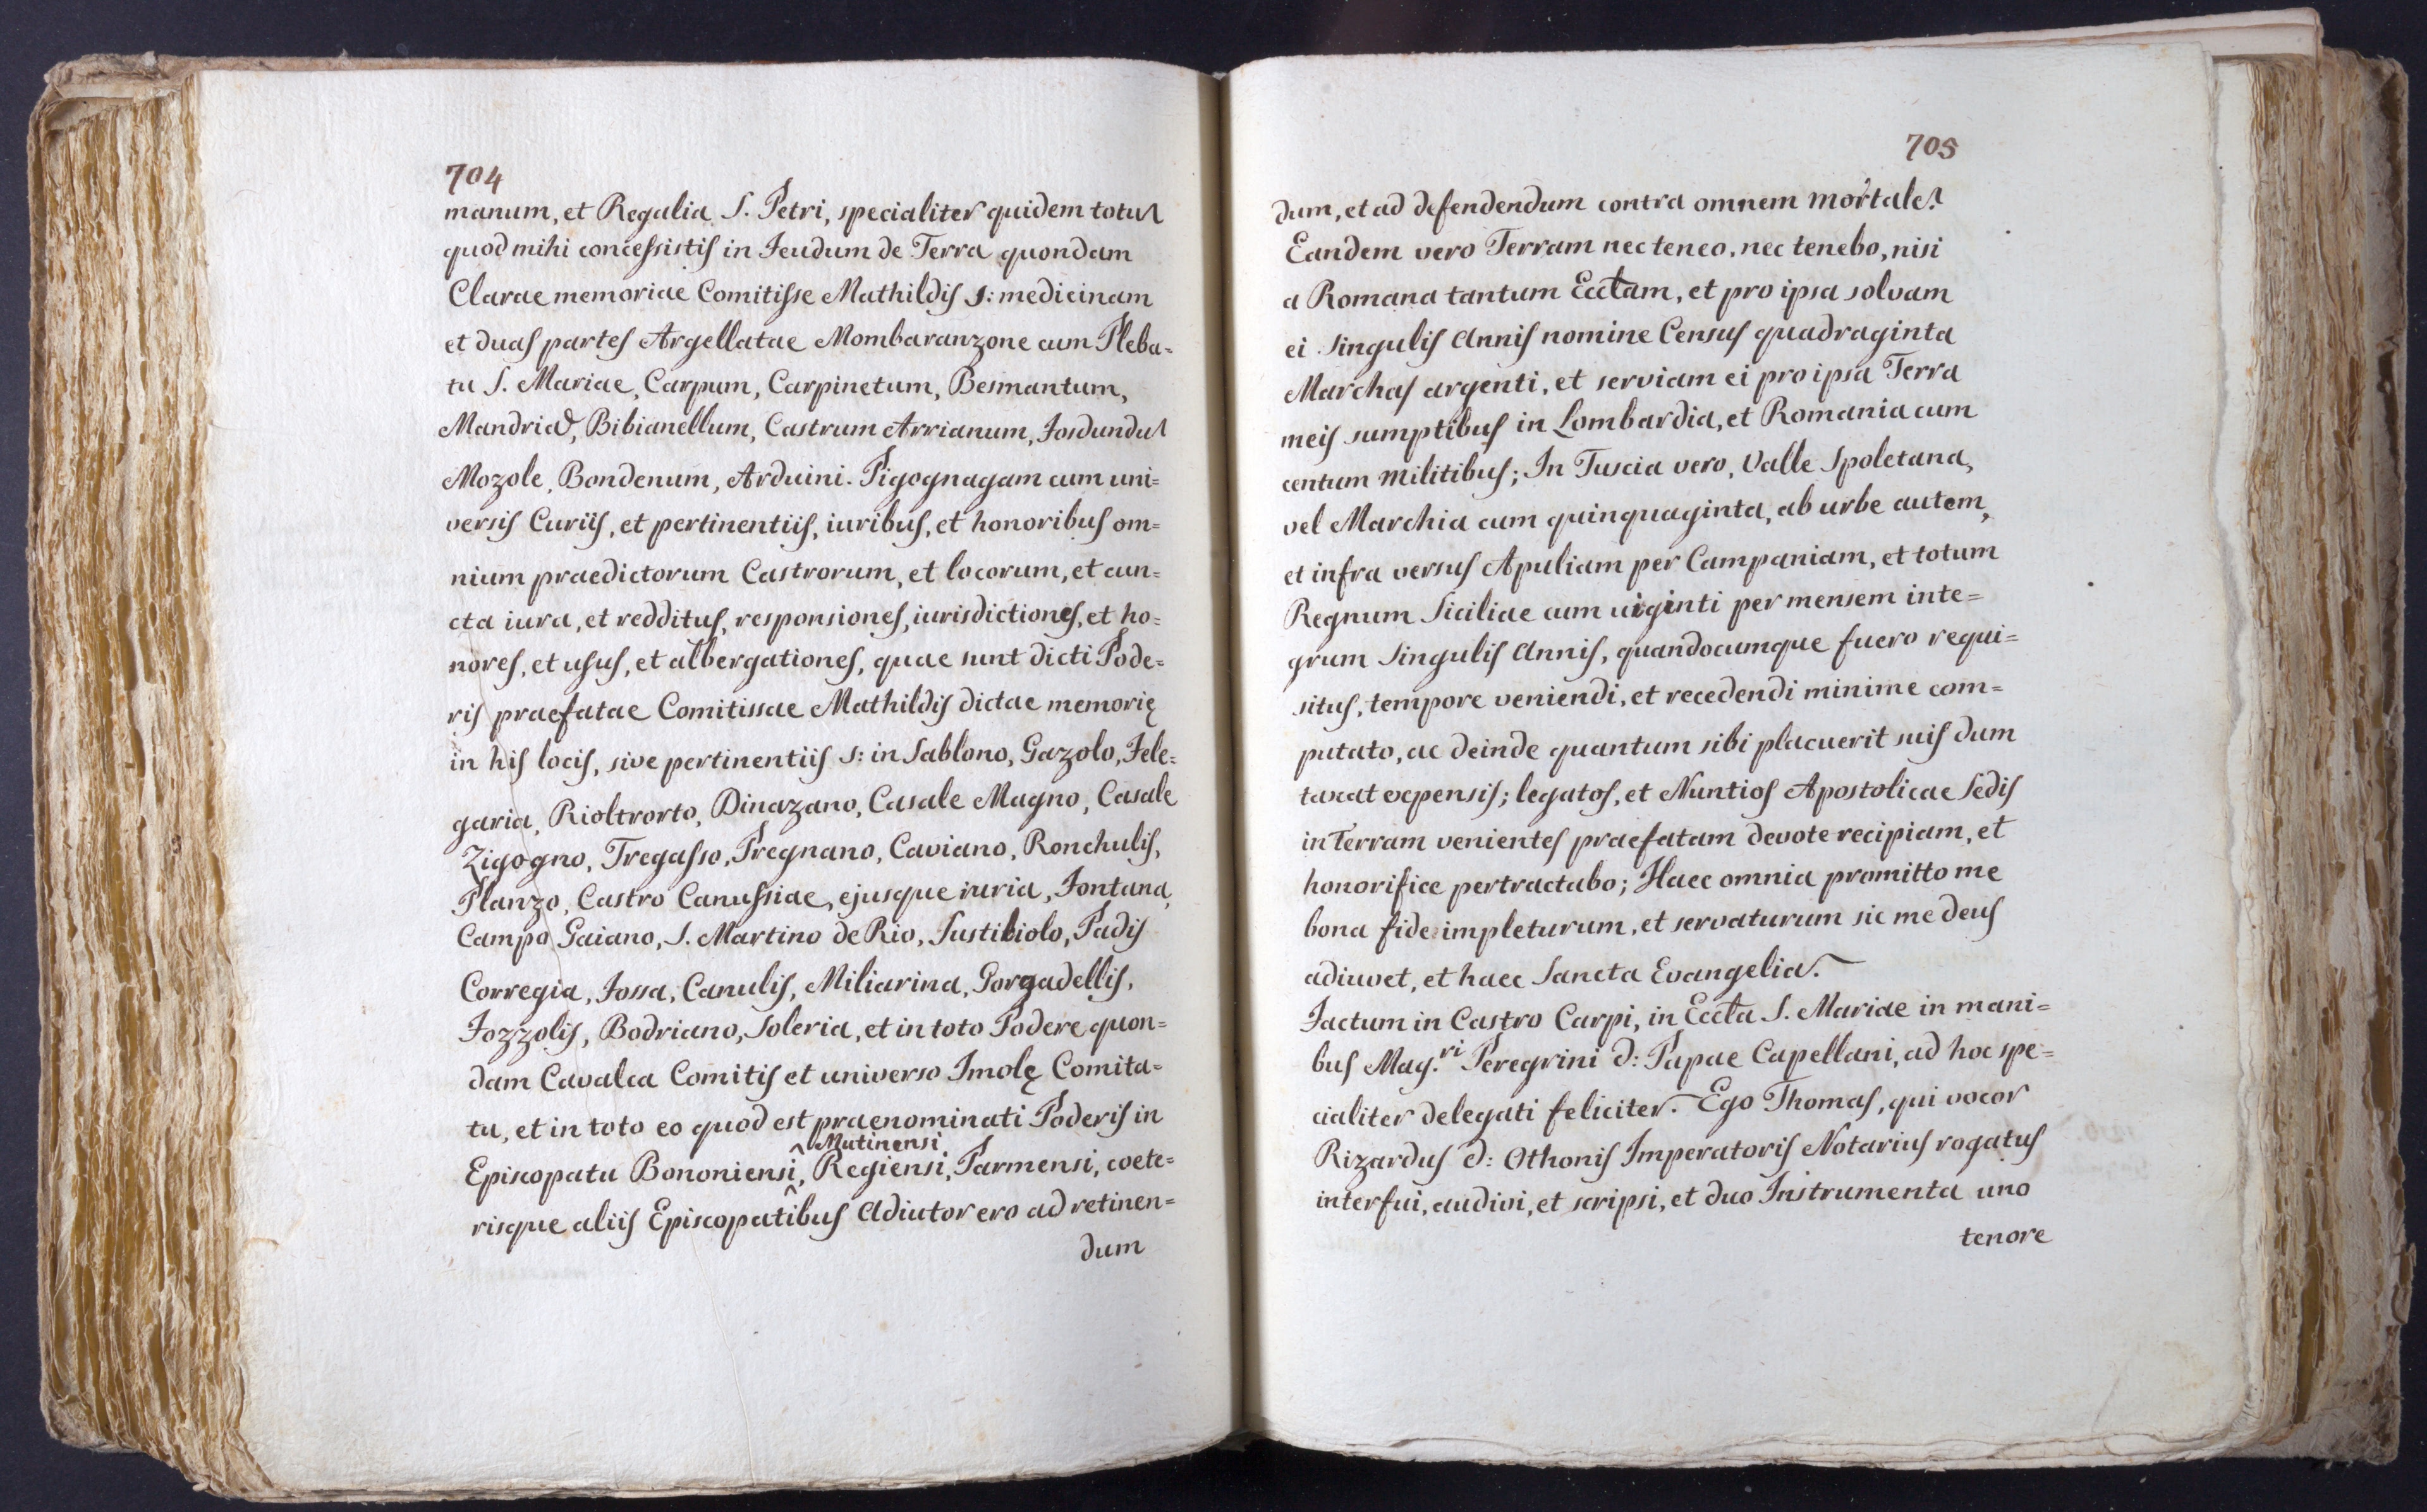 704
manum, et Regalia S. Petri, specialiter quidem totum
quod mihi concessistis in Feudum de Terra quondam
Clarae memoriae Comitisse Mathildis s: medicinam
et duas partes Argellatae Mombaranzone cum Pleba=
tu S. Mariae, Carpum, Carpinetum, Besmantum,
Mandriam, Bibianellum, Castrum Arrianum, Fosdundum
Mozole, Bondenum, Arduini. Pigognagam cum uni=
versis Curiis, et pertinentiis, iuribus, et honoribus om=
nium praedictorum Castrorum, et locorum, et cun=
cta iura, et redditus, responsiones, iurisdictiones, et ho=
nores, et usus, et albergationes, quae sunt dicti Pode=
ris praefatae Comitissae Mathildis dictae memorię
in his locis, sive pertinentiis s: in Sablono, Gazolo, Fele=
garia, Rioltrorto, Dinazano, Casale Magno, Casale
Zigogno, Tregasso, Pregnano, Caviano, Ronchulis,
Planzo, Castro Canussiae, ejusque iuria, Fontana,
Campo Gaiano, S. Martino de Rio, Sustibiolo, Padis
Corregia, Fossa, Canulis, Miliarina, Gorgadellis,
Fozzolis, Bodriano, Soleria, et in toto Podere quon=
dam Cavalca Comitis et universo Imolę Comita=
tu, et in toto eo quod est praenominati Poderis in
Mutinensi
Episcopatu Bononiensi, Regiensi, Parmensi, coete=
risque aliis Episcopatibus Adiutor ero ad retinen=
dum
705
dum, et ad defendendum contra omnem mortalem.
Eandem vero Terram nec teneo, nec tenebo, nisi
a Romana tantum Ecctam, et pro ipsa solvam
ei singulis Annis nomine Census quadraginta
Marchas argenti, et serviam ei pro ipsa Terra
meis sumptibus in Lombardia, et Romania cum
centum militibus; In Tuscia vero, Valle Spoletana,
vel Marchia cum quinquaginta, ab urbe autem,
et infra versus Apuliam per Campaniam, et totum
Regnum Siciliae cum uiginti per mensem inte=
grum singulis Annis, quandocumque fuero requi=
situs, tempore veniendi, et recedendi minime com=
putato, ac deinde quantum sibi placuerit suis dum
taxat expensis; legatos, et Nuntios Apostolicae Sedis
in Terram venientes praefatam devote recipiam, et
honorifice pertractabo; Haec omnia promitto me
bona fide impleturum, et servaturum sic me deus
adiuvet, et haec Sancta Evangelia.
Factum in Castro Carpi, in Eccta S. Mariae in mani=
bus Mag.ri Peregrini d: Papae Capellani, ad hoc spe=
cialiter delegati feliciter. Ego Thomas, qui vocor
Rizardus d: Othonis Imperatoris Notarius rogatus
interfui, audivi, et scripsi, et duo Instrumenta uno
tenore